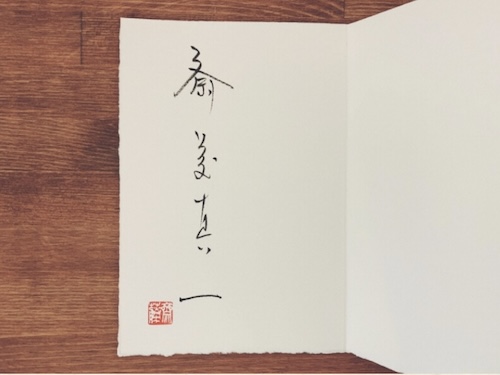 斎藤真一